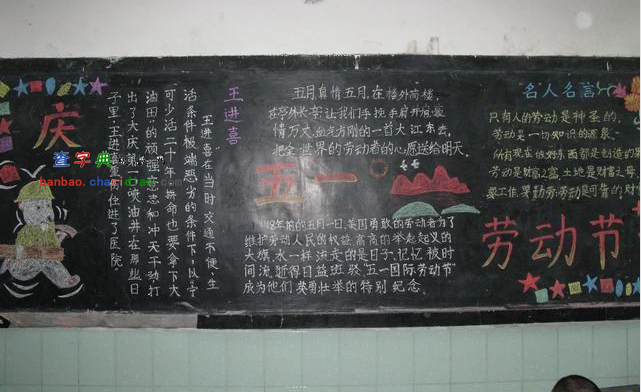 庆
王进喜
王进喜在当时交通不便、生
活条件极端恶劣的条件下，以宁
可少活二十年，拼命也要拿下大
油田的顽强意志和冲天干劲打
出了大庆第一喷油井在那些日
子里，王进喜重住进了医院
查字典
banbao.chazidian.com
五月自情五月，在楼外高楼，
在亭外长亭让我们手挽手肩并肩
情万丈，血气方刚的一首大江东去，
把全世界的劳动者的心愿送给明天。
五一
年前的五月一日，美国勇敢的劳动者为了
维护劳动人民的权益高高的举起起义的
大旗，水一样流走的是日子，记忆被时
间流逝得日益斑驳，五一国际劳动节
成为他们英勇壮举的特别纪念。
名人名言
只有人的劳动是神圣的。
劳动是一切知识的源泉。
所有现在的好东西都是创造的果
劳动是财富之父，土地是财富之母，
要工作，要勤劳：劳动是可靠的财
劳动节